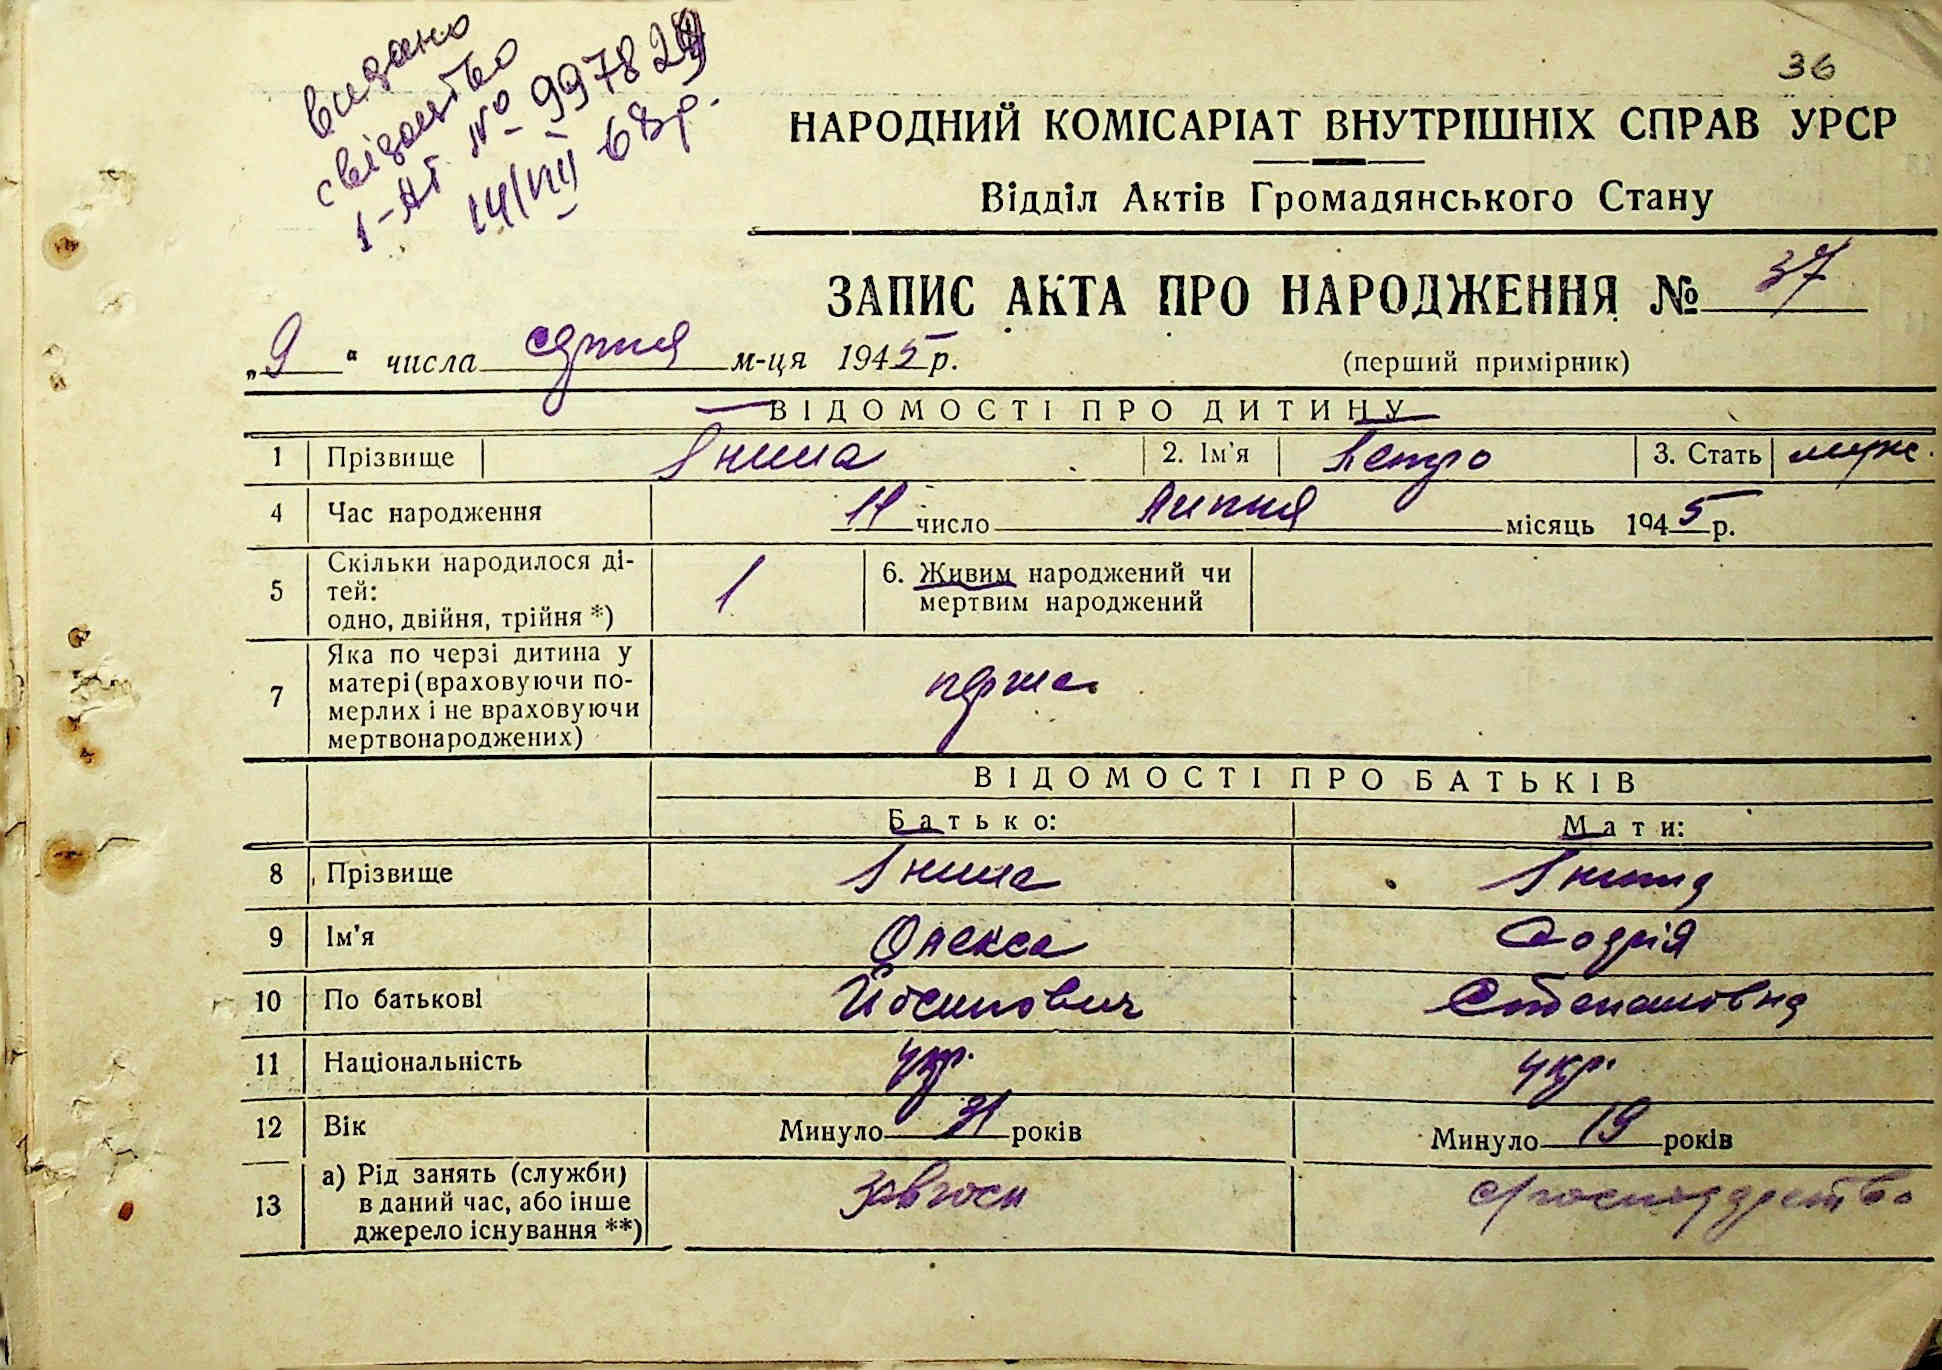 видано
свідоцтво
1-АГ № 997829
14/VIII 68р.
36
НАРОДНИЙ КОМІСАРІАТ ВНУТРІШНІХ СПРАВ УРСР
Відділ Актів Громадянського Стану
ЗАПИС АКТА ПРО НАРОДЖЕННЯ № 37
„9“ числа серпня м-ця 1945 р.
(перший примірник)
ВІДОМОСТІ ПРО ДИТИНУ
1 Прізвище 2. Ім'я Петро 3. Стать муж.
4 Час народження 11 число липня місяць 1945 р.
5 Скільки народилося ді-
тей:
одно, двійня, трійня *) 1
6. Живим народжений чи
мертвим народжений
7 Яка по черзі дитина у
матері (враховуючи по-
мерлих і не враховуючи
мертвонароджених) перша
ВІДОМОСТІ ПРО БАТЬКІВ
Батько: Мати:
8 Прізвище
9 Ім'я Олекса
10 По батькові Йосипович Степановна
11 Національність укр. укр.
12 Вік Минуло 31 років Минуло 19 років
13 а) Рід занять (служби)
в даний час, або інше
джерело існування **) завгосп